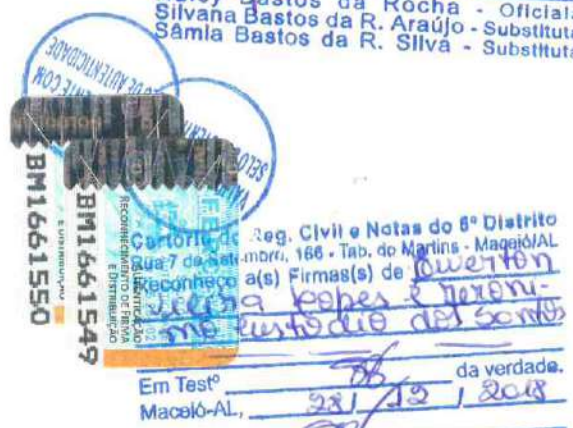 Bastos da Rocha - Oficiala
Silvana Bastos da R. Araújo - Substituta
Sâmia Bastos da R. Silva - Substituta
DE AUTENTICIDADE
COM
SELO
BM1661550
BM1661549
RECONHECIMENTO DE FIRMA
E DISTRIBUIÇÃO
Cartório do Reg. Civil e Notas do 6º Distrito
Rua 7 de Setembro, 166 - Tab. do Martins - Maceió/AL
Reconheço a(s) Firmas(s) de Ewerton
Vieira Lopes e Jeroni-
mo Custodio dos Santos
Em Testº da verdade.
Maceió-AL, 28 / 12 / 2018